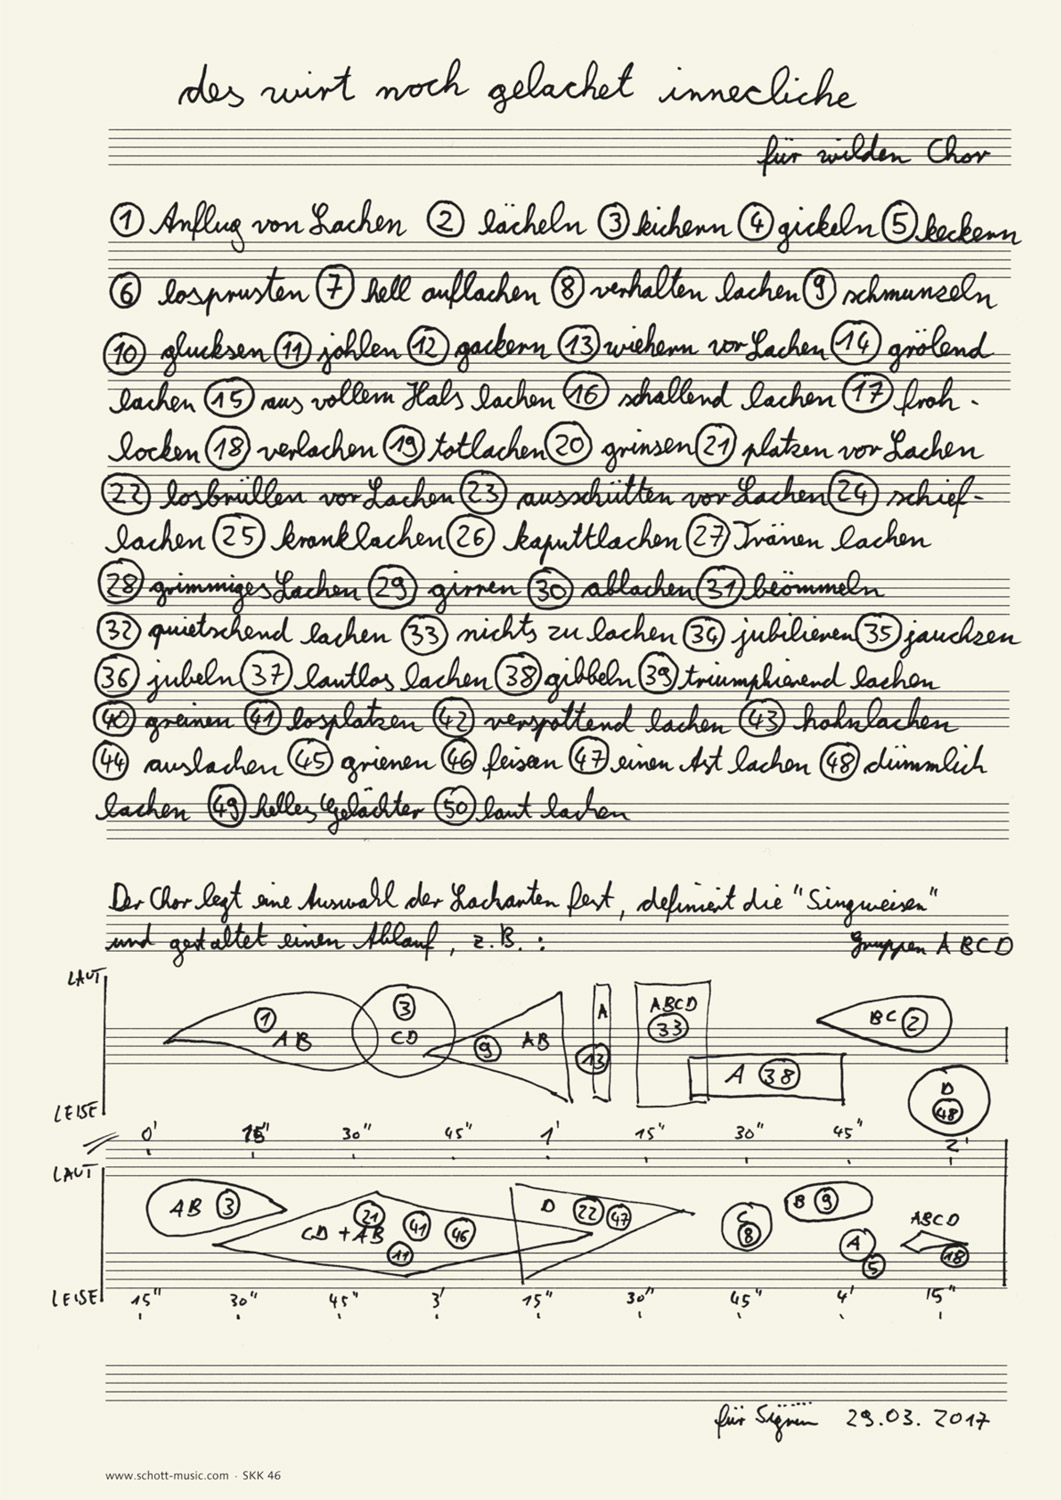 des wirt noch gelachet innecliche
für wilden Chor
① Anflug von Lachen ② lächeln ③ kichern ④ gickeln ⑤ keckern
⑥ losprusten ⑦ hell auflachen ⑧ verhalten lachen ⑨ schmunzeln
⑩ glucksen ⑪ johlen ⑫ gackern ⑬ wiehern vor Lachen ⑭ grölend
lachen ⑮ aus vollem Hals lachen ⑯ schallend lachen ⑰ froh-
locken ⑱ verlachen ⑲ totlachen ⑳ grinsen ㉑ platzen vor Lachen
㉒ losbrüllen vor Lachen ㉓ ausschütten vor Lachen ㉔ schief-
lachen ㉕ kranklachen ㉖ kaputtlachen ㉗ Tränen lachen
㉘ grimmiges Lachen ㉙ girren ㉚ ablachen ㉛ beömmeln
㉜ quietschend lachen ㉝ nichts zu lachen ㉞ jubilieren ㉟ jauchzen
㊱ jubeln ㊲ lautlos lachen ㊳ gibbeln ㊴ triumphierend lachen
㊵ greinen ㊶ losplatzen ㊷ verspottend lachen ㊸ hohnlachen
㊹ auslachen ㊺ grienen ㊻ feixen ㊼ einen Ast lachen ㊽ dümmlich
lachen ㊾ helles Gelächter ㊿ laut lachen
Der Chor legt eine Auswahl der Lacharten fest, definiert die "Singweisen"
und gestaltet einen Ablauf, z.B.:
Gruppen A B C D
LAUT
① AB ③ CD ⑨ AB A ⑬ ABCD ㉝ A ㊳ BC ② D ㊽
LEISE
0' 15" 30" 45" 1' 15" 30" 45" 2'
LAUT
AB ③ CD + AB ㉑ ㊶ ㊻ ⑪ D ㉒ ㊼ C ⑧ B ⑨ A ⑤ ABCD ⑱
LEISE
15" 30" 45" 3' 15" 30" 45" 4' 15"
für 29.03.2017
www.schott-music.com · SKK 46